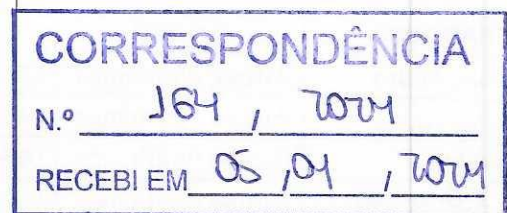 CORRESPONDÊNCIA
N.º 164, 2024
RECEBI EM 05, 01, 2024